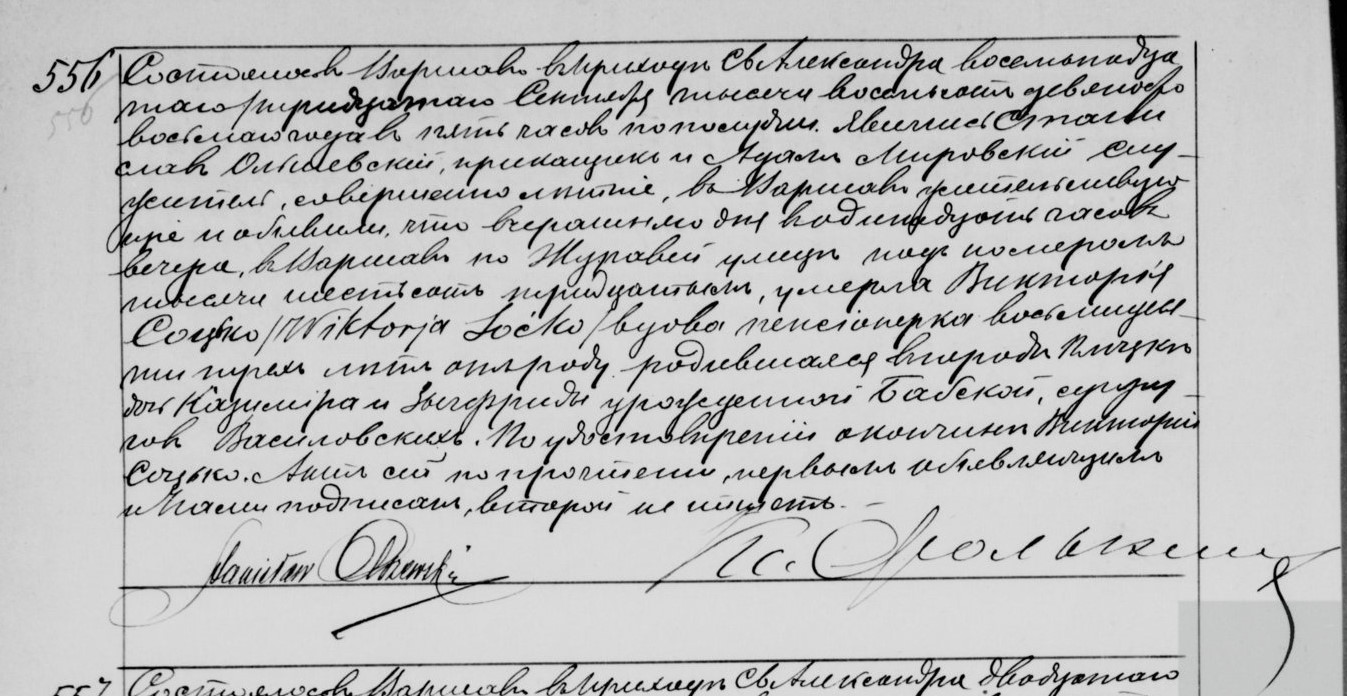 556 Состоялось въ Варшавѣ въ приходѣ Св. Александра восемнадца
556 таго/тридцатаго Сентября тысяча восемьсотъ девяносто
восьмаго года въ пять часовъ по полудни. Явились Стани
славъ Ольшевскій, прикащикъ и Адамъ Мировскій слу-
житель, совершеннолѣтніе, въ Варшавѣ жительствую-
щіе и объявили, что вчерашняго дня въ одинадцать часовъ
вечера, въ Варшавѣ по Журавей улицѣ подъ номеромъ
тысяча шестьсотъ тридцатымъ, умерла Викторія
Соцько /Wiktorja Soćko/ вдова пенсіонерка восьмидеся-
ти трехъ лѣтъ отъ роду родившаяся въ городѣ
дочь Казиміра и урожденной Бабской, супру-
говъ Василовскихъ. По удостовѣреніи о кончинѣ Викторіи
Соцько. Актъ сей по прочтеніи, первымъ объявляющимъ
и Нами подписанъ, второй не пишетъ. -
Stanisław Olszewski
557 Состоялось въ Варшавѣ въ приходѣ Св. Александра двадцатаго